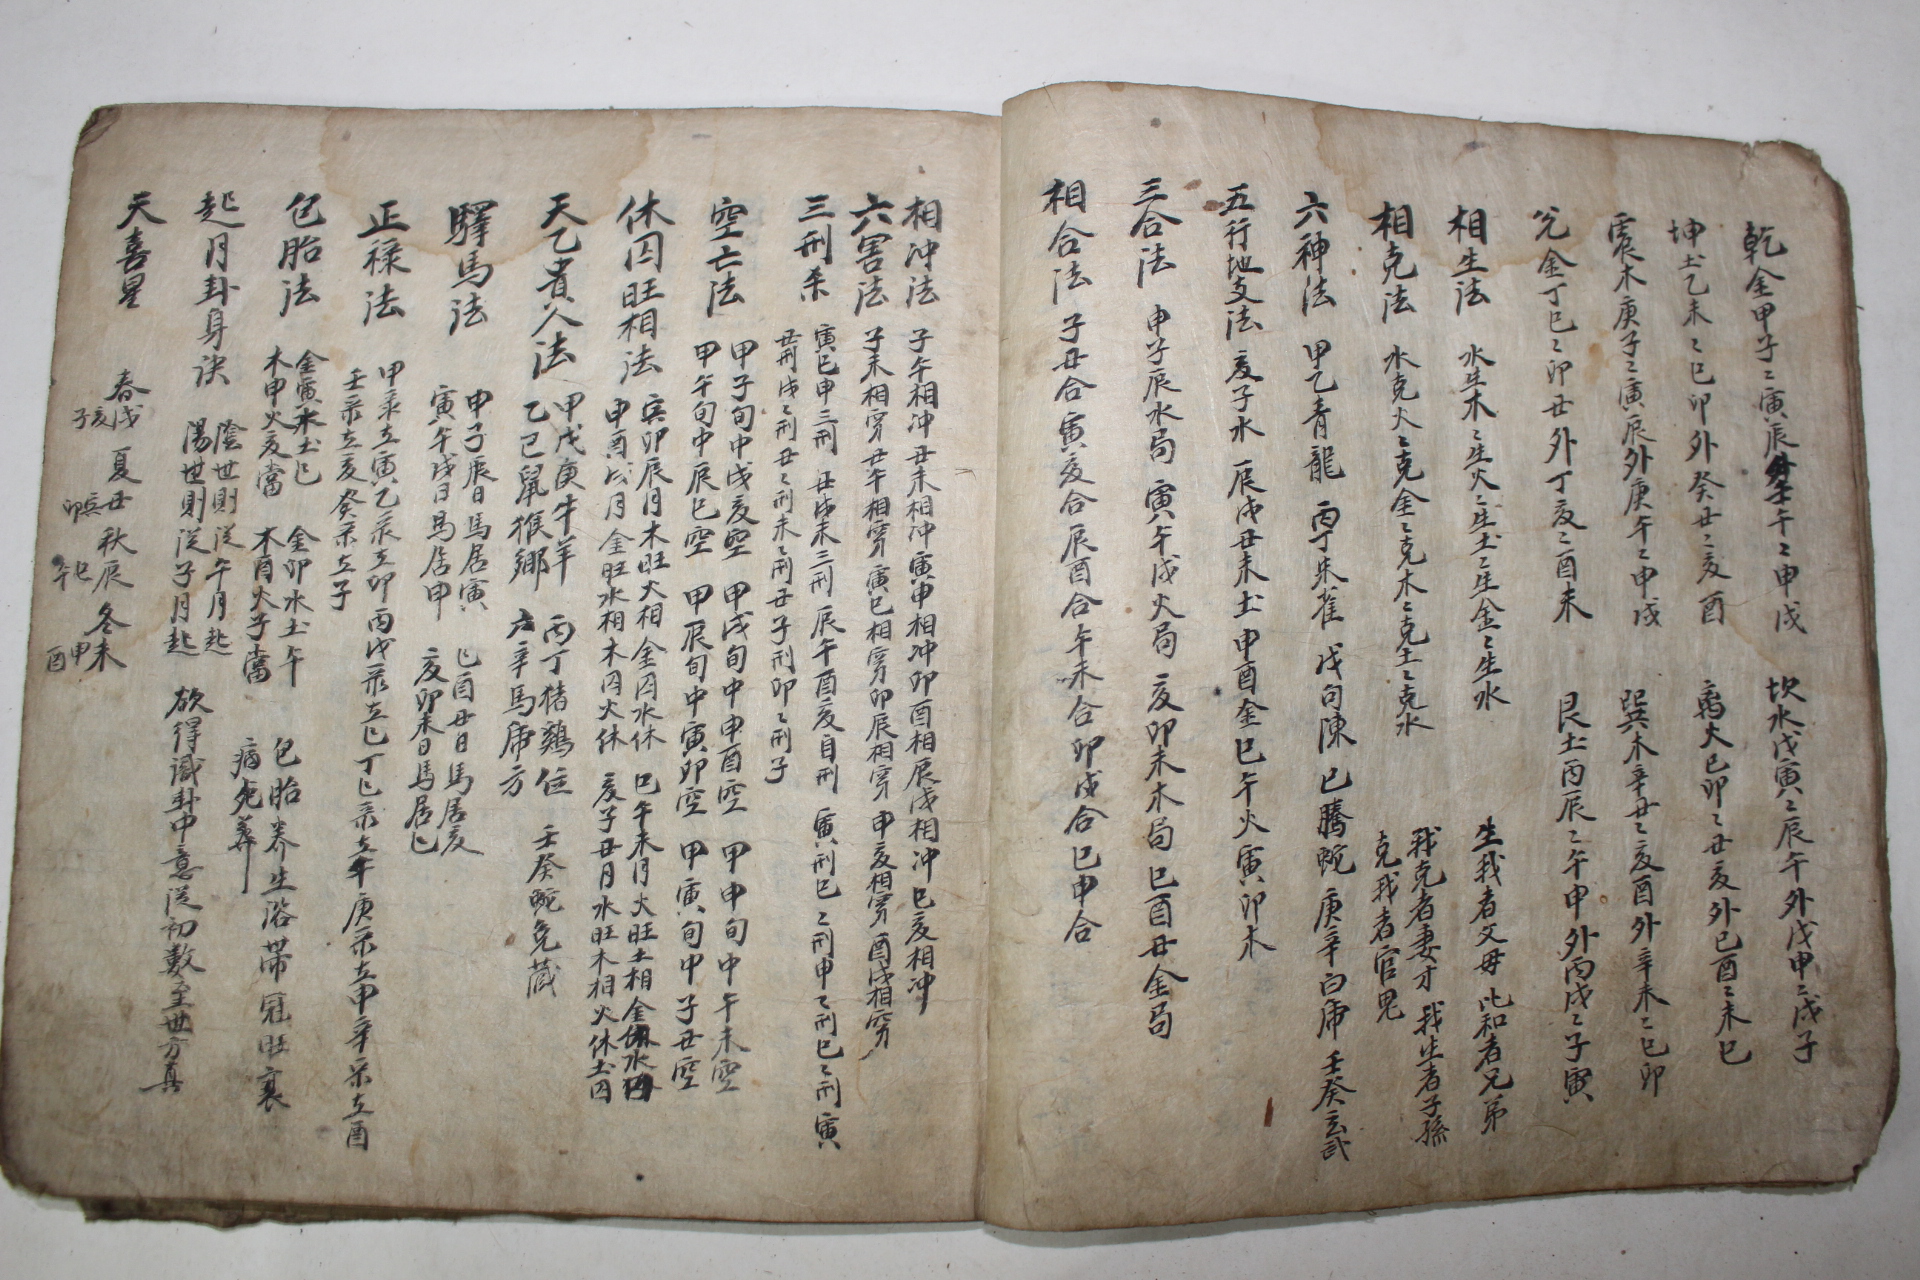 乾金甲子〻寅辰外壬午〻甲戌 坎水戊寅〻辰午外戊申〻戌子
坤土乙未〻巳卯外癸丑〻亥酉 离火已卯〻丑亥外已酉〻未巳
震木庚子〻寅辰外庚午〻申戌 巽木辛丑〻亥酉外辛未〻巳卯
兌金丁巳〻卯丑外丁亥〻酉未 艮土丙辰〻午申外丙戌〻子寅
相生法 水生木〻生火〻生土〻生金〻生水 生我者父母 比和者兄弟
相克法 水克火〻克金〻克木〻克土〻克水 我克者妻才 我生者子孫
克我者官鬼
六神法 甲乙青龍 丙丁朱雀 戊句陳 巳騰蛇 庚辛白虎 壬癸玄武
五行地支法 亥子水 辰戌丑未土 申酉金 巳午火 寅卯木
三合法 申子辰水局 寅午戌火局 亥卯未木局 巳酉丑金局
相合法 子丑合 寅亥合 辰酉合 午未合 卯戌合 巳申合
相冲法 子午相冲 丑未相冲 寅申相冲 卯酉相 辰戌相冲 巳亥相冲
六害法 子未相穿 丑午相穿 寅巳相穿 卯辰相穿 申亥相穿 酉戌相穿
三刑杀 寅巳申三刑 丑戌未三刑 辰午酉亥自刑 寅刑巳〻刑申〻刑巳〻刑寅
丑刑戌〻刑丑〻刑未〻刑丑 子刑卯〻刑子
空亡法 甲子旬中戌亥空 甲戌旬中申酉空 甲申旬中午未空
甲午旬中辰巳空 甲辰旬中寅卯空 甲寅旬中子丑空
休囚旺相法 寅卯辰月木旺火相金囚水休 巳午未月火旺土相金休水囚
申酉戌月金旺水相木囚火休 亥子丑月水旺木相火休土囚
天乙貴人法 甲戊庚牛羊 丙丁猪鷄位 壬癸蛇兔藏
乙已鼠猴鄉 六辛馬虎方
驛馬法 申子辰日馬居寅 巳酉丑日馬居亥
寅午戌日馬居申 亥卯未日馬居巳
正祿法 甲彔立寅 乙彔立卯 丙戊彔立巳 丁已彔立午 庚彔立申 辛彔立酉
壬彔立亥 癸彔立子
包胎法 金寅水土巳 金卯水土午 包胎养生浴帶冠旺衰
木申火亥當 木酉火子當 病死葬
起月卦身诀 陰世則從午月起
陽世則從子月起 欲得識卦中意從初數至世方真
天喜星 春戌 夏丑 秋辰 冬未
子亥 卯寅 午巳 酉申